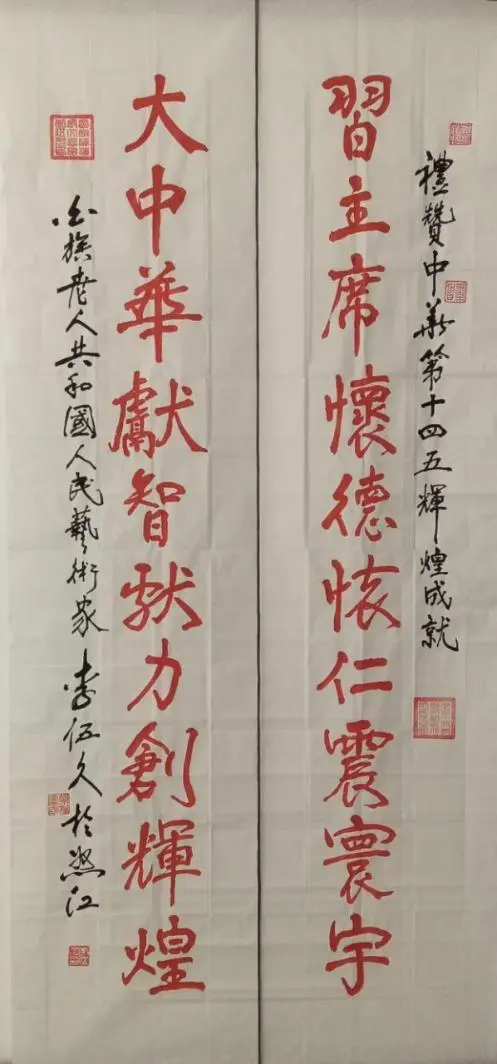 禮贊中華第十四五輝煌成就
習主席懷德怀仁震寰宇
大中華獻智献力創輝煌
白族老人共和國人民藝術家 李伍久於怒江